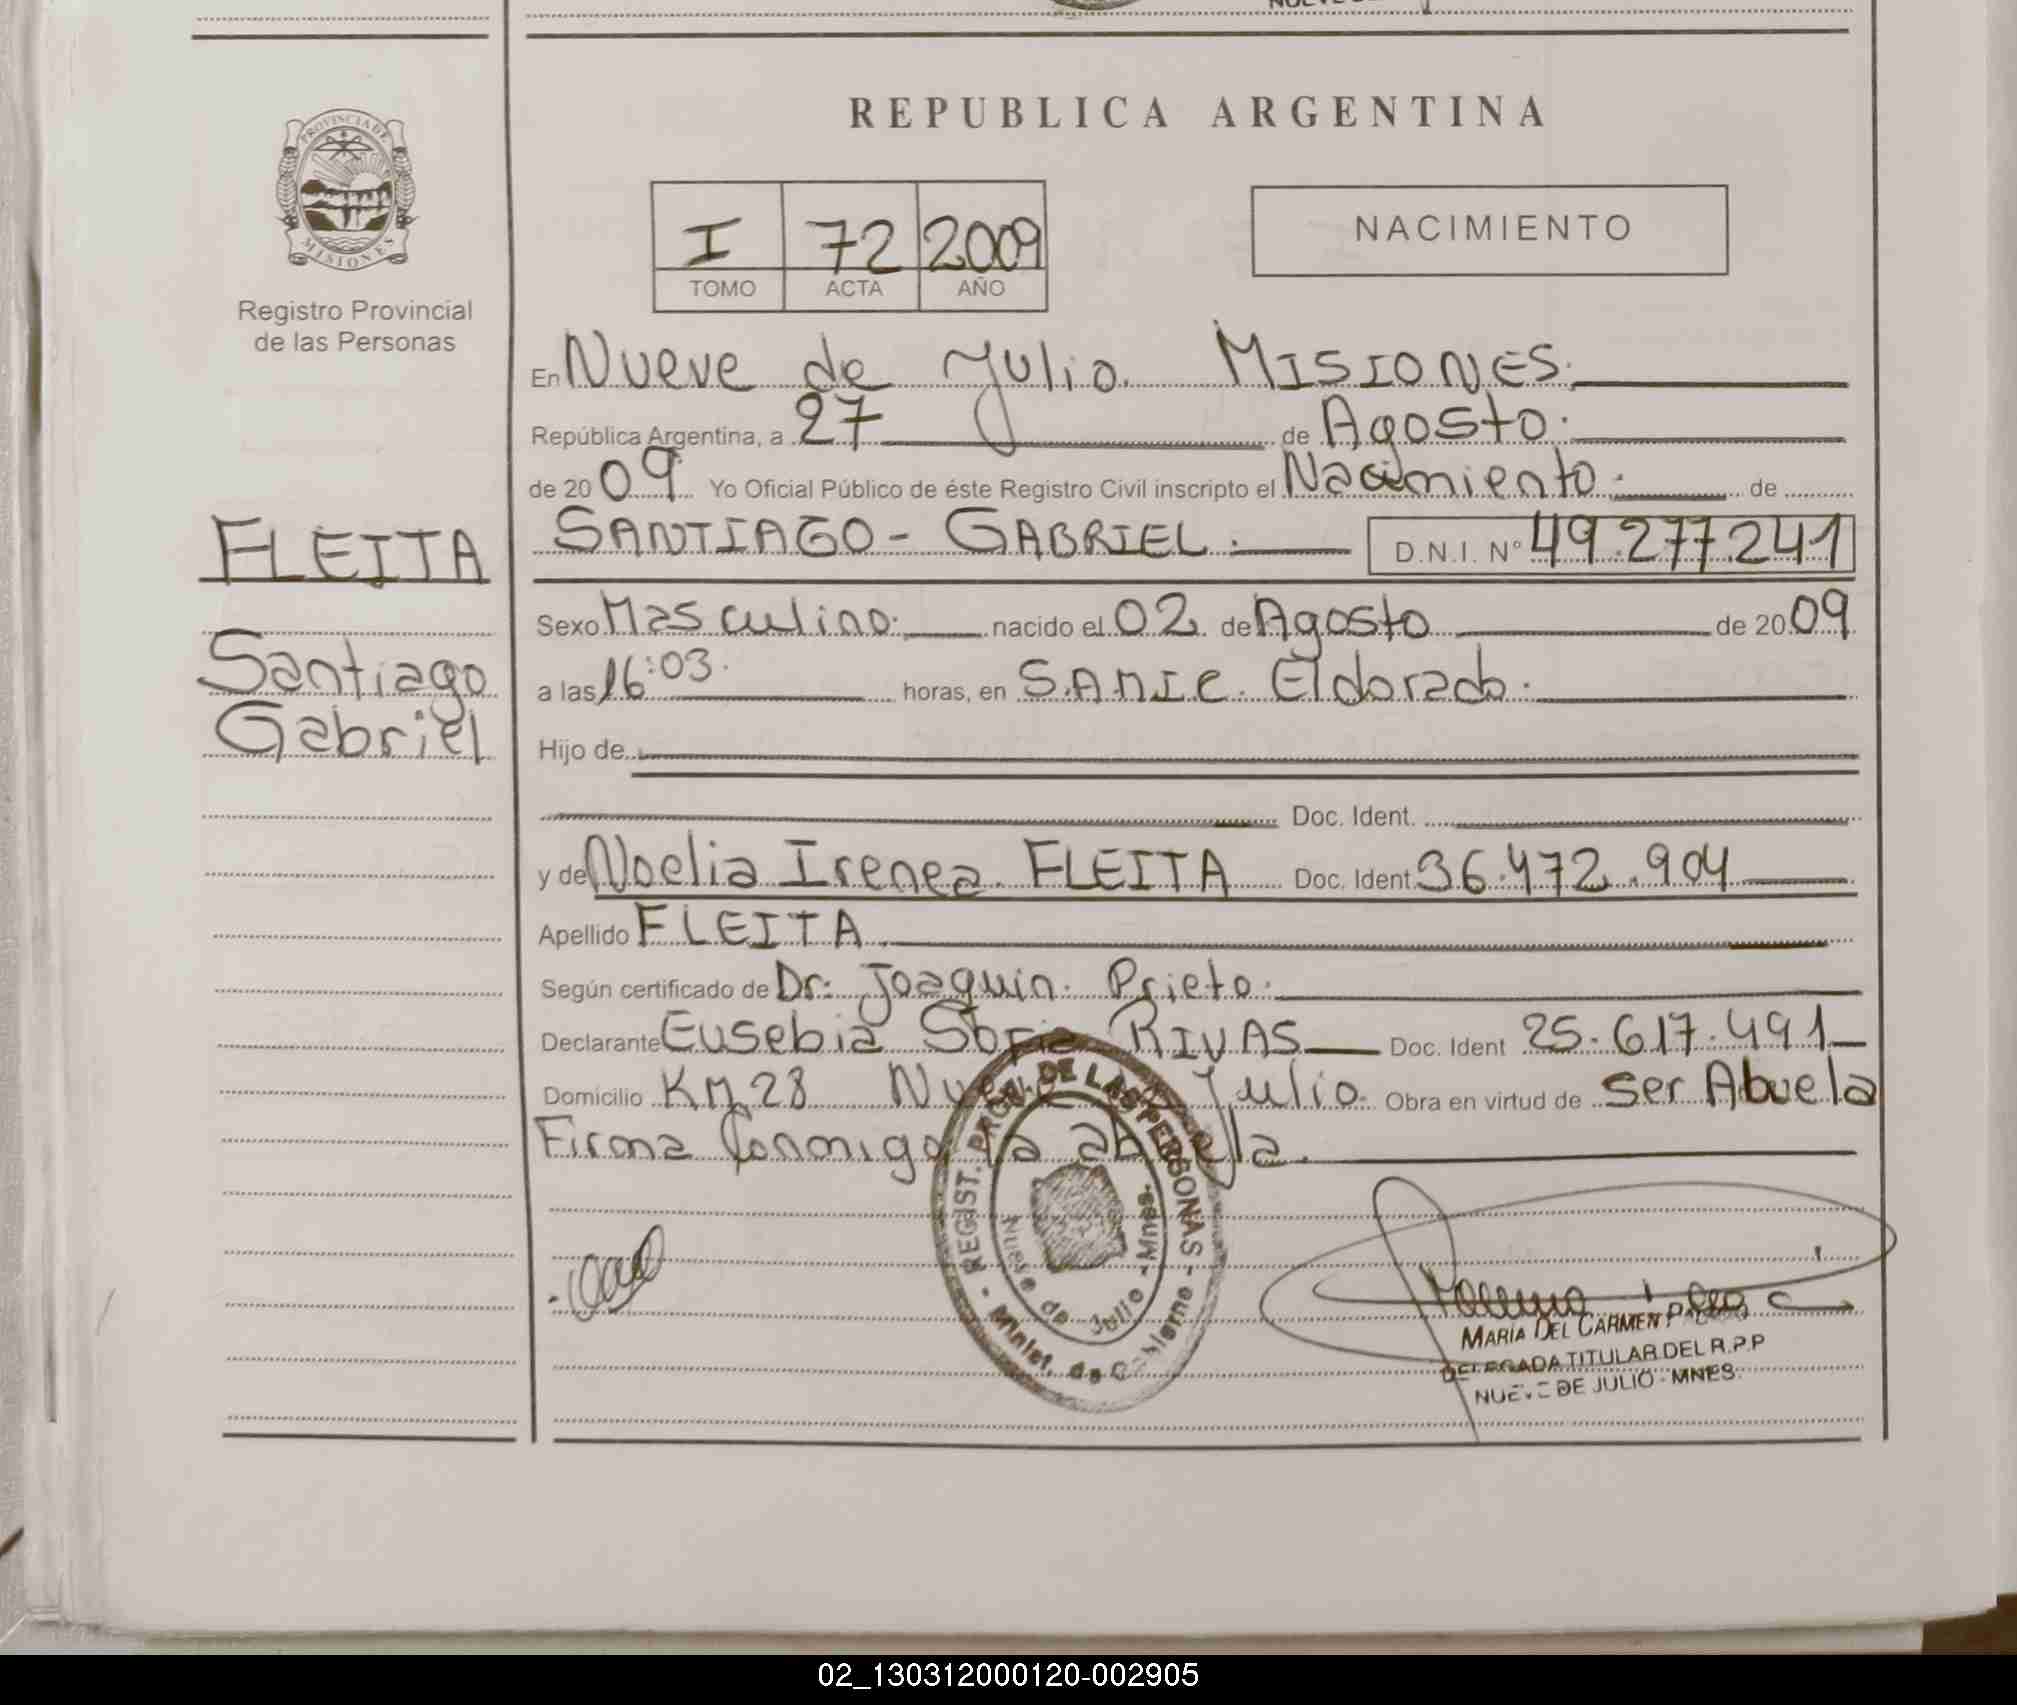 REPUBLICA ARGENTINA
PROVINCIA DE
MISIONES
Registro Provincial
de las Personas
I 72 2009
TOMO ACTA AÑO
NACIMIENTO
En Nueve de Julio. MISIONES.
República Argentina, a 27 de Agosto.
de 20 09 Yo Oficial Público de éste Registro Civil inscripto el Nacimiento. de
FLEITA
Santiago
Gabriel
SANTIAGO - GABRIEL. D.N.I. N° 49.277.241
Sexo Masculino. nacido el 02 de Agosto de 20 09
a las 16:03. horas, en S.A.M.I.C. Eldorado.
Hijo de
Doc. Ident.
y de Noelia Irenea FLEITA Doc. Ident. 36.472.904
Apellido FLEITA.
Según certificado de Dr. Joaquin. Prieto.
Declarante Eusebia Sofia RIVAS Doc. Ident 25.617.491
Domicilio KM 28 Nueve de Julio. Obra en virtud de Ser Abuela
Firma Conmigo la abuela.
- REGIST. PROV. DE LAS PERSONAS -
Minist. de Gobierno
Nueve de Julio - Mnes.
MARIA DEL CARMEN
DELEGADA TITULAR DEL R.P.P
NUEVE DE JULIO - MNES.
02_130312000120-002905